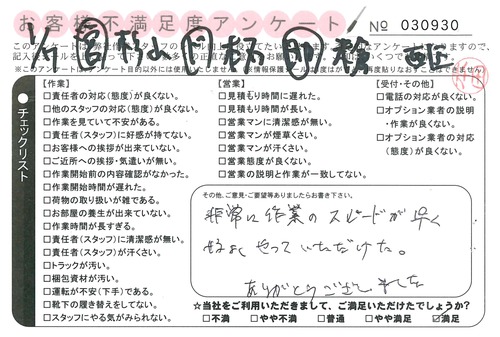 お客様不満足度アンケート
№ 030930
チェックリスト
【作業】
□責任者の対応(態度)が良くない。
□他のスタッフの対応(態度)が良くない。
□作業を見ていて不安がある。
□責任者(スタッフ)に好感が持てない。
□お客様への挨拶が出来ていない。
□ご近所への挨拶・気遣いが無い。
□作業開始前の内容確認がなかった。
□作業開始時間が遅れた。
□荷物の取り扱いが雑である。
□お部屋の養生が出来ていない。
□作業時間が長すぎる。
□責任者(スタッフ)に清潔感が無い。
□責任者(スタッフ)が汗くさい。
□トラックが汚い。
□梱包資材が汚い。
□運転が不安(下手)である。
□靴下の履き替えをしてない。
□スタッフにやる気がみられない。
【営業】
□見積もり時間に遅れた。
□見積もり時間が長い。
□営業マンに清潔感が無い。
□営業マンが煙草くさい。
□営業マンが汗くさい。
□営業態度が良くない。
□営業の説明と作業が一致してない。
【受付・その他】
□電話の対応が良くない。
□オプション業者の説明
・作業が良くない。
□オプション業者の対応
(態度)が良くない。
その他、ご意見・ご要望等ありましたらお書き下さい。
非常に作業のスピードが早く
やっていただけた。
ありがとうございました
☆当社をご利用いただきまして、ご満足いただけたでしょうか?
□不満 □やや不満 □普通 □やや満足 ☑満足